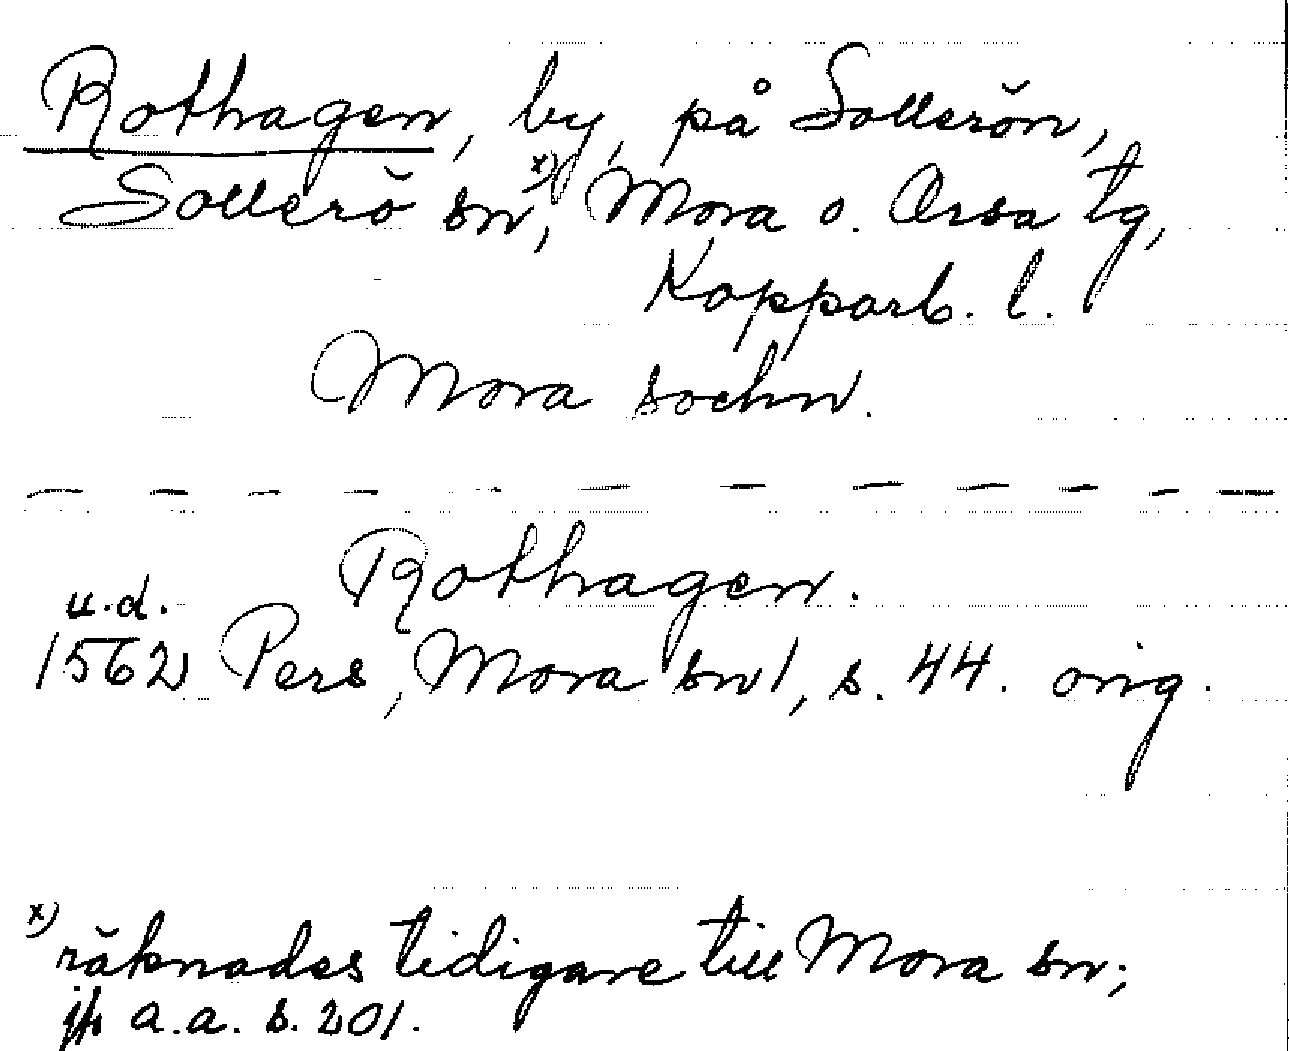 Rothagen, by, på Sollerön,
Sollerö sn x), Mora o. Orsa tg,
Kopparb. l.
Mora sochn.
Rothagen.
u.d.
1562 Pers, Mora sn 1, s. 44. orig.
x) räknades tidigare till Mora sn;
jfr a.a. s. 201.